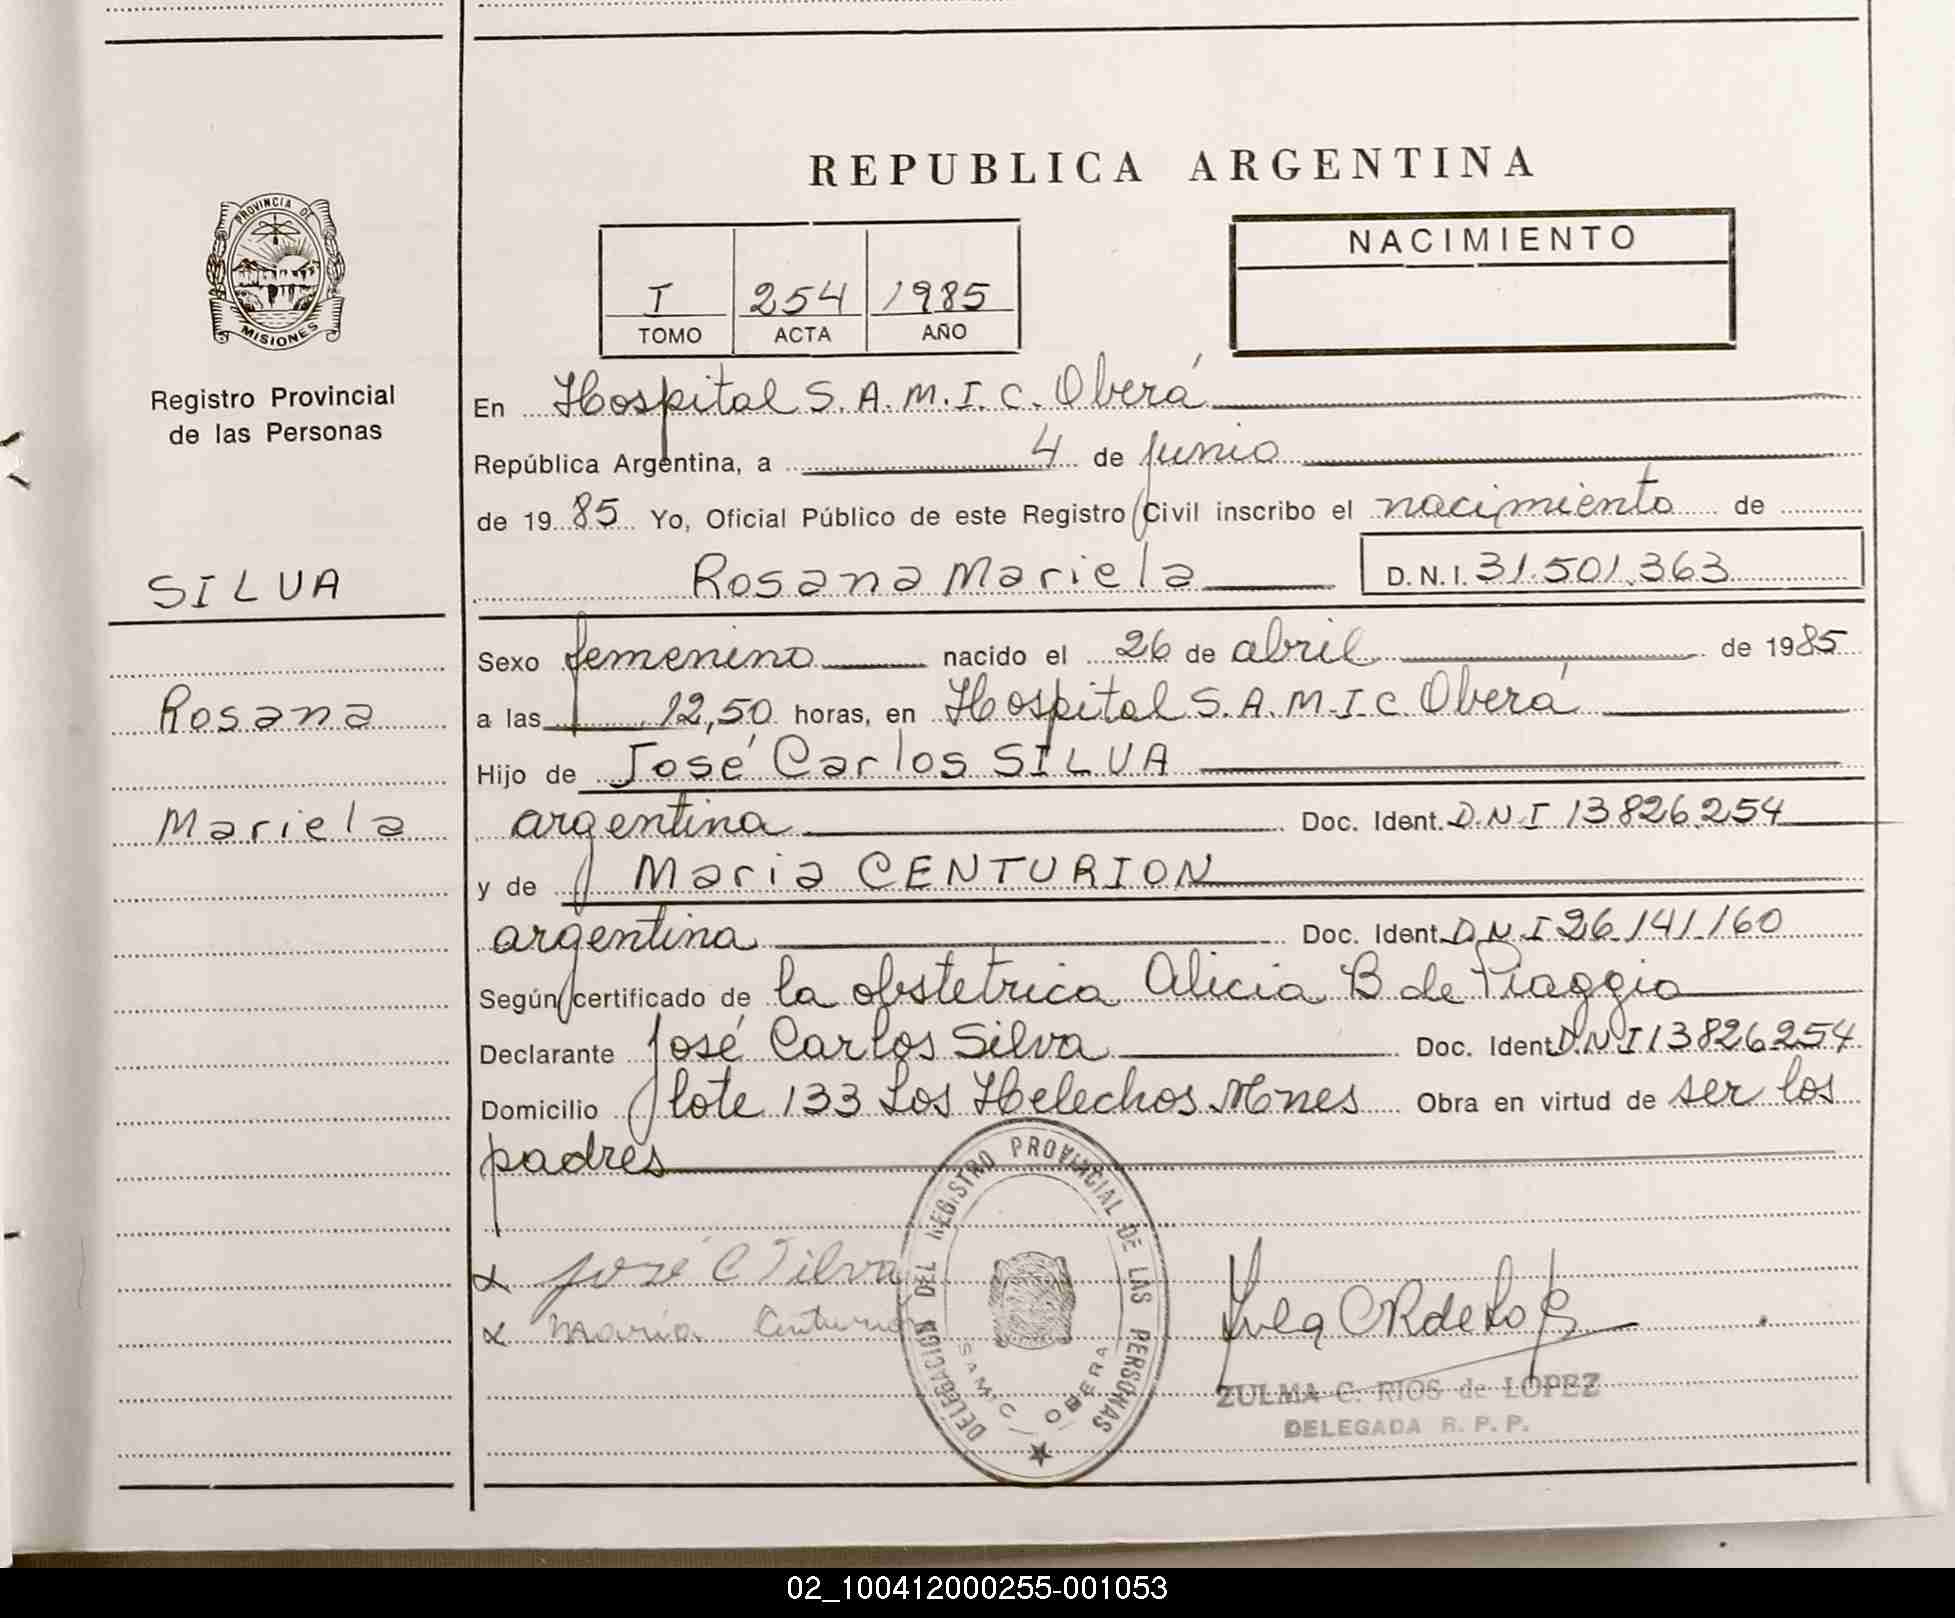 REPUBLICA ARGENTINA
PROVINCIA DE
MISIONES
Registro Provincial
de las Personas
SILVA
Rosana
Mariela
I 254 1985
TOMO ACTA AÑO
NACIMIENTO
En Hospital S.A.M.I.C. Oberá
República Argentina, a 4 de junio
de 1985 Yo, Oficial Público de este Registro Civil inscribo el nacimiento de
Rosana Mariela D.N.I. 31.501.363
Sexo femenino nacido el 26 de abril de 1985
a las 12,50 horas, en Hospital S.A.M.I.C. Oberá
Hijo de José Carlos SILVA
argentina Doc. Ident. D.N.I 13826254
y de Maria CENTURION
argentina Doc. Ident. D.N.I 26141160
Según certificado de la obstetrica Alicia B de Piaggio
Declarante José Carlos Silva Doc. Ident D.N.I 13826254
Domicilio lote 133 Los Helechos Mnes Obra en virtud de ser los
padres
x José C Silva
x Maria Centurión
DELEGACION DEL REGISTRO PROVINCIAL DE LAS PERSONAS
SAMIC OBERA
ZULMA C. RIOS de LOPEZ
DELEGADA R. P. P.
02_100412000255-001053